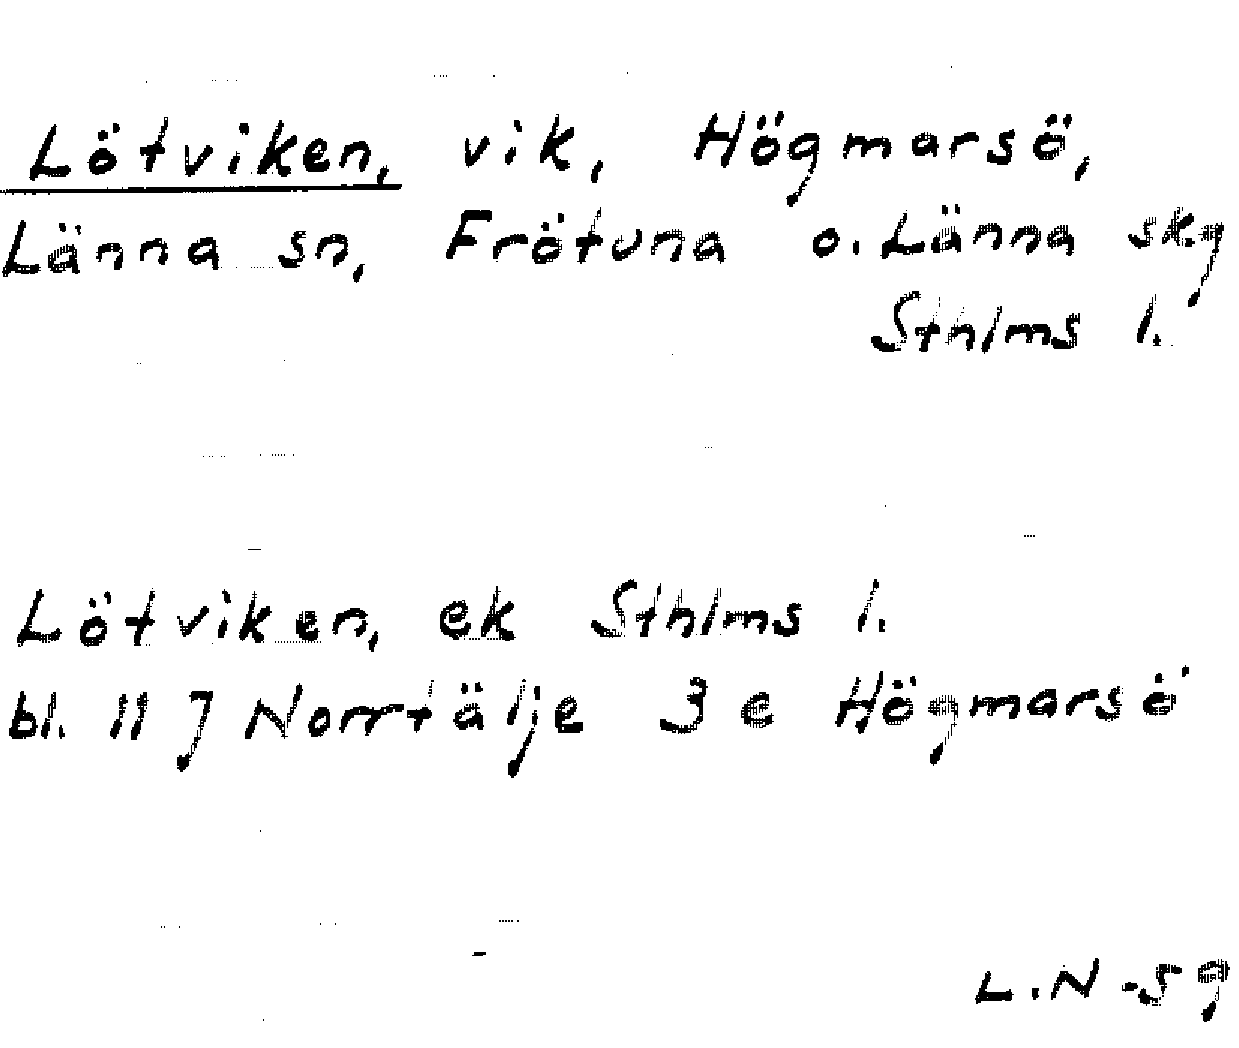 Lötviken, vik, Högmarsö,
Länna sn, Frötuna o. Länna skg
Sthlms l.
Lötviken, ek Sthlms l.
bl. 11 J Norrtälje 3 e Högmarsö
L.N -59